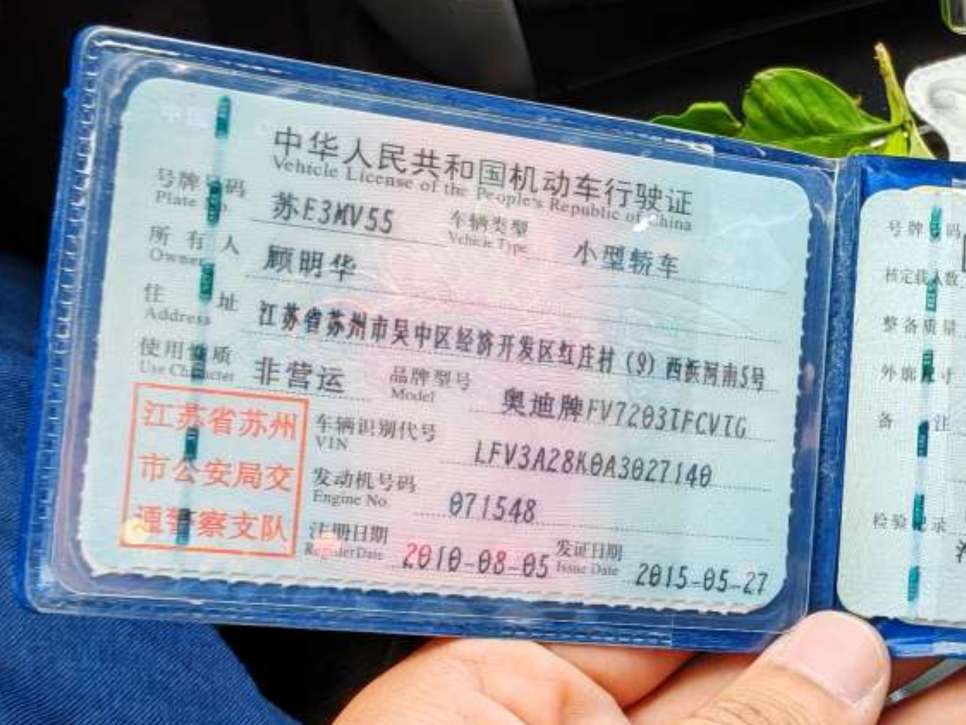 中华人民共和国机动车行驶证
Vehicle License of the People's Republic of China
号牌号码 苏E3MV55 车辆类型 小型轿车
Plate No. Vehicle Type
所有人 顾明华
Owner
住址 江苏省苏州市吴中区经济开发区红庄村（9）西浜河南5号
Address
使用性质 非营运 品牌型号 奥迪牌FV7203TFCVTG
Use Character Model
江苏省苏州
市公安局交
通警察支队
车辆识别代号 LFV3A28K0A3027140
VIN
发动机号码 071548
Engine No.
注册日期 2010-08-05 发证日期 2015-05-27
Register Date Issue Date
号牌号码
核定载人数
整备质量
外廓尺寸
备注
检验记录